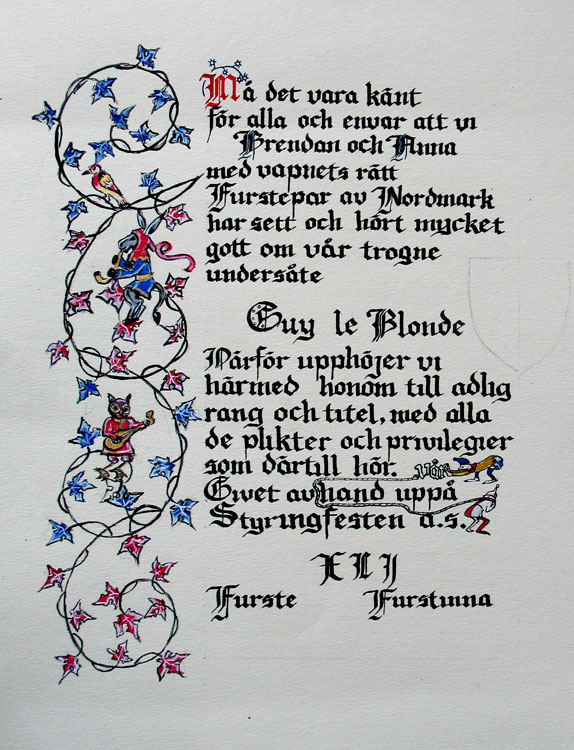 Må det vara känt
för alla och envar att vi
Brendan och Anna
med vapnets rätt
Furstepar av Nordmark
har sett och hört mycket
gott om vår trogne
undersåte
Guy le Blonde
Därför upphöjer vi
härmed honom till adlig
rang och titel, med alla
de plikter och privilegier
som därtill hör. vår
Givet av hand uppå
Styringfesten a.s.
XLI
Furste Furstinna